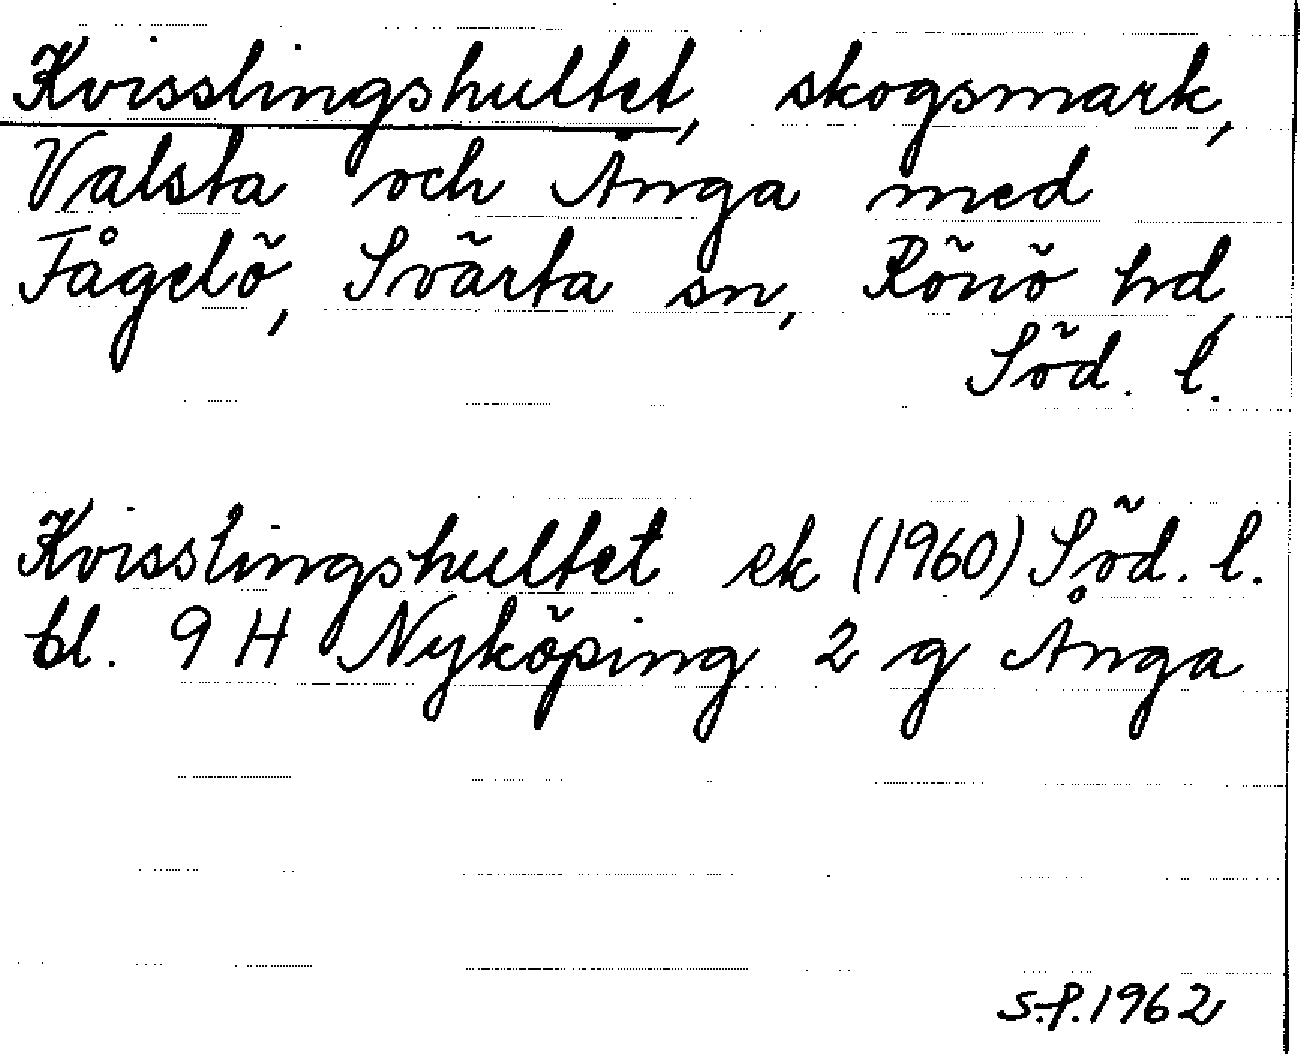 Kvisslingshultet, skogsmark,
Valsta och Ånga med
Fågelö, Svärta sn, Rönö hd,
Söd. l.
Kvisslingshultet ek (1960) Söd. l.
bl. 9 H Nyköping 2 g Ånga
S.f. 1962